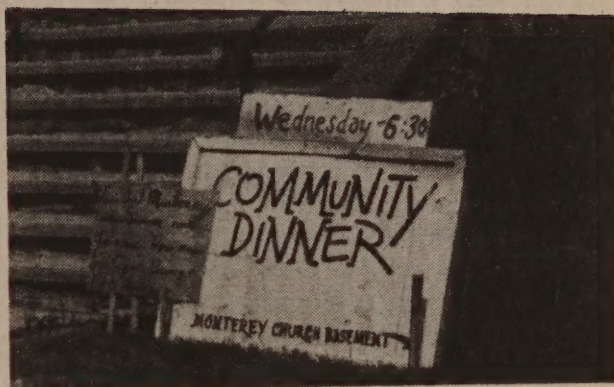 Wednesday - 6:30
COMMUNITY
DINNER
MONTEREY CHURCH BASEMENT